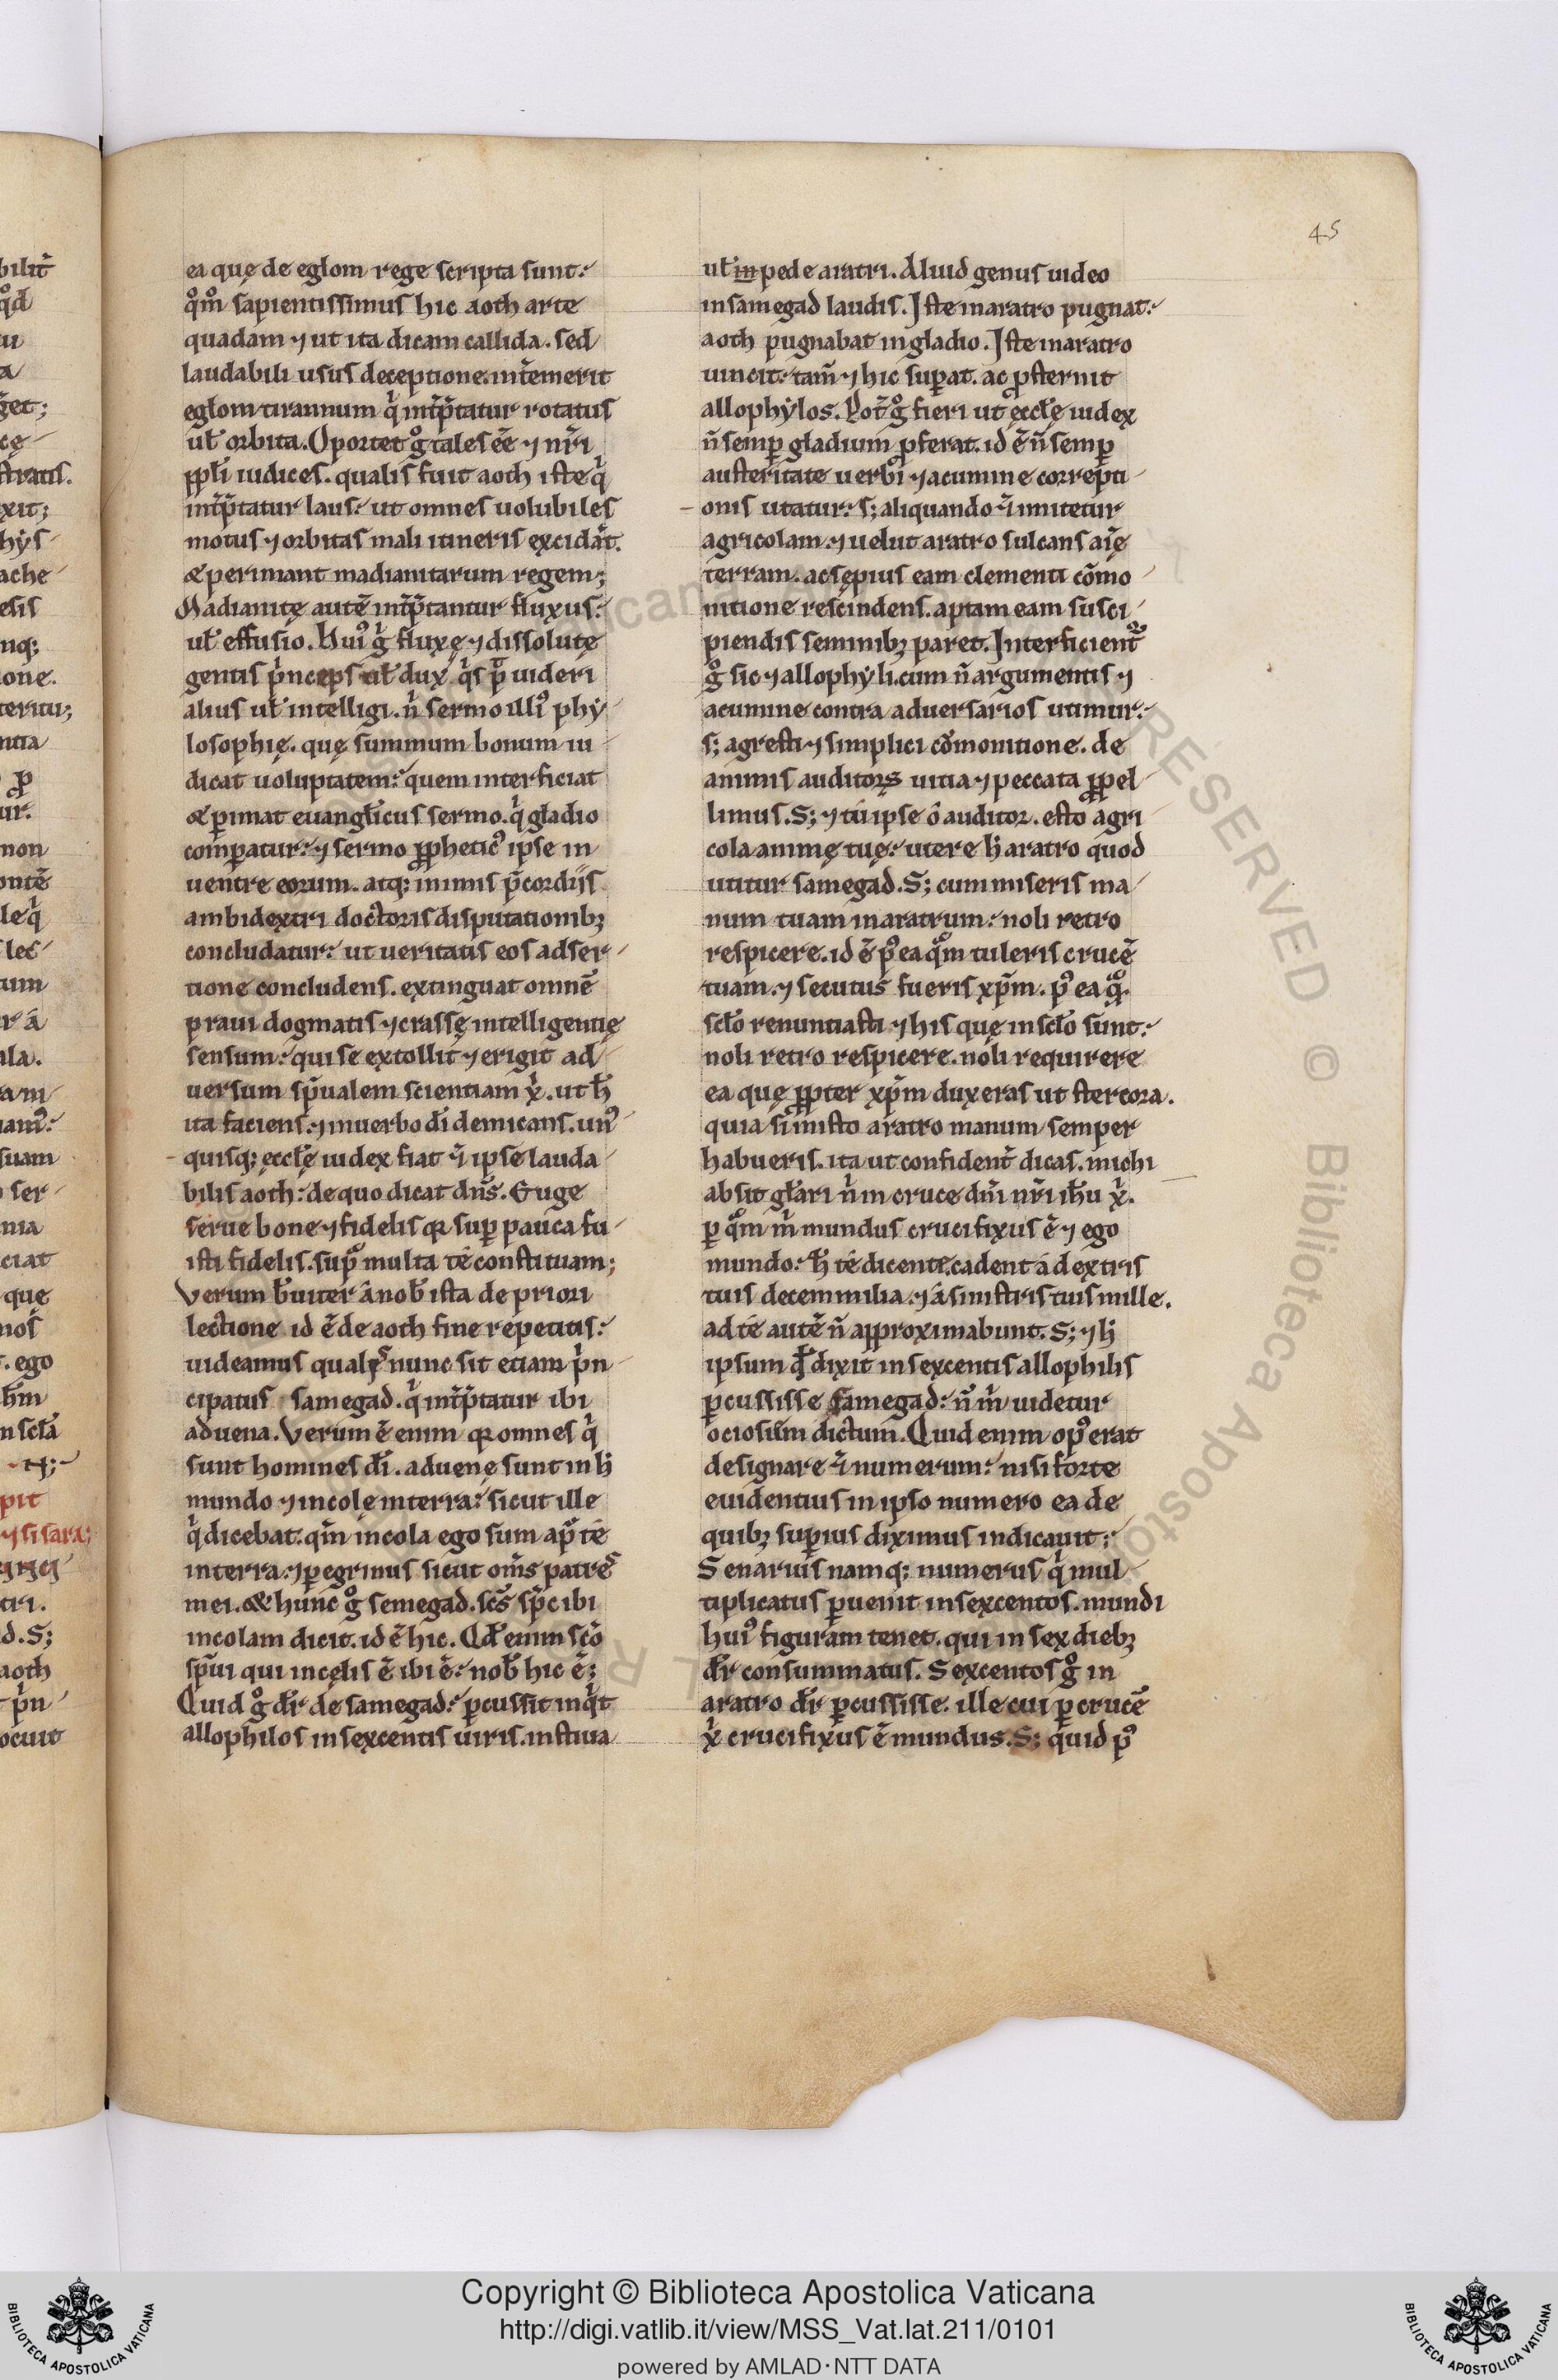 45
ea quę de eglom rege scripta sunt.
qm̊ sapientissimus hic aoth arte
quadam ⁊ ut ita dicam callida. sed
laudabili usus deceptione. int̄emerit
eglom tirannum q̍ int̄p̄tatur rotatus
ut̄ orbita. Oportet g̊ tales eē ⁊ nr̄i
ppl̄i iudices. qualis fuit aoth iste q̍
int̄p̄tatur laus. ut omnes uolubiles
motus ⁊ orbitas mali itineris excidāt.
& perimant madianitarum regem;
Madianitę autē int̄p̄tantur fluxus.
ut̄ effusio. Hui᷒ g̍ fluxę ⁊ dissolutę
gentis p̍nceps ut̄ dux q̍s p̄ uideri
alius ut̄ intelligi. n̍ sermo illi᷒ phẏ
losophię. quę summum bonum iu
dicat uoluptatem. quem interficiat
& ꝑimat euangl̄icus sermo. q̍ gladio
comꝑatur. ⁊ sermo ꝓphetic᷒ ipse in
uentre eorum. atq; inimis p̄cordijs
ambidextri doctoris disputationibꝫ
concludatur. ut ueritatis eos adser
tione concludens. extinguat omnē
praui dogmatis ⁊ crassę intelligentię
sensum. qui se extollit ⁊ erigit ad
uersum sp̄ualem scientiam x̍. ut h̄
ita faciens. ⁊ inuerbo dī demicans. un᷒
quisq; ęccl̄ę iudex fiat ⁊̄ ipse lauda
bilis aoth. de quo dicat dn̄s. Euge
serue bone ⁊ fidelis qꝛ suꝑ pauca fu
isti fidelis. sup̊ multa té constituam;
Verum b̄uiter â nob̄ ista de priori
lectione id ē de aoth fine repetitis.
uideamus qualis nunc sit etiam p̍n
cipatus samegad. q̍ int̄p̄tatur ibi
aduena. Verum ē enim qꝛ omnes q̍
sunt homines dī. aduenę sunt in h̄
mundo ⁊ incolę interra. sicut ille
q̍ dicebat. qm̄ incola ego sum ap̄ té
interra. ⁊ ꝑegrinus sicut om̄s patres
mei. & hunc g̊ semegad. sc̄s sp̄c ibi
incolam dicit. id ē hic. Qd̄ enim sc̄o
sp̄ui qui in cęlis ē ibi ē. nob̄ hic ē;
Quid g̊ dr̄ de samegad. ꝑcussit inq̍t
allophilos in sexcentis uiris. instiua
ut̄ in pede aratri. Aluid genus uideo
in samegad laudis. Iste inaratro pugnat.
aoth pugnabat in gladio. Iste inaratro
uincit. tam̄ ⁊ hic suꝑat. ac ꝓsternit
allophẏlos. Pot̄ g̊ fieri ut ęccl̄ę iudex
n̄ semꝑ gladium ꝓferat. id ē n̄ semꝑ
austeritate uerbi ⁊ acumine correpti
onis utatur. s; aliquando ⁊̄ imitetur
agricolam. ⁊ uelut aratro sulcans aīę
terram. ac sępius eam clementi cōmo
nitione rescindens. aptam eam susci
piendis seminibꝫ paret. Interficient᷑
g̊ sic ⁊ allophẏli. cum n̄ argumentis ⁊
acumine contra aduersarios utimur.
s; agresti ⁊ simplici cōmonitione. de
animis auditorꝝ uitia ⁊ peccata ꝓpel
limus. S; ⁊ tú ipse ô auditor. esto agri
cola animę tuę. utere h̄ aratro quod
utitur samegad. S; cum miseris ma
num tuam inaratrum. noli retro
respicere. id ē p᷒ ea q̊m tuleris crucē
tuam. ⁊ secutus fueris xp̄m. p᷒ ea q̊.
scl̄o renuntiasti ⁊ his quę inscl̄o sunt.
noli retro respicere. noli requirere
ea quę ꝓpter xp̄m duxeras ut stercora.
quia si inisto aratro manum semper
habueris. ita ut confident̄ dicas. michi
absit gl̄ari n̍ in cruce dn̄i nr̄i ih̄u x̍.
ꝑ q̊m m̍ mundus crucifixus ē ⁊ ego
mundo. h̄ té dicente. cadent á dextris
tuis decem milia. ⁊ â sinistris tuis mille.
ad té autē n̄ approximabunt. S; ⁊ h̄
ipsum qd̄ dixit in sexcentis allophilis
ꝑcussisse samegad. n̄ m̍ uidetur
ociosum dictum. Quid enim op᷒ erat
designare ⁊̄ numerum. nisi forte
euidentius in ipso numero ea de
quibꝫ suꝑius diximus indicauit;
Senarius namq; numerus q̍ mul
tiplicatus ꝑuenit insexcentos. mundi
hui᷒ figuram tenet. qui in sex diebꝫ
dr̄ consummatus. Sexcentos g̊ in
aratro dr̄ ꝑcussisse. ille cui ꝑ crucē
x̍ crucifixus ē mundus. S; quid p᷒
Copyright © Biblioteca Apostolica Vaticana
http://digi.vatlib.it/view/MSS_Vat.lat.211/0101
powered by AMLAD·NTT DATA
BIBLIOTECA APOSTOLICA VATICANA
BIBLIOTECA APOSTOLICA VATICANA